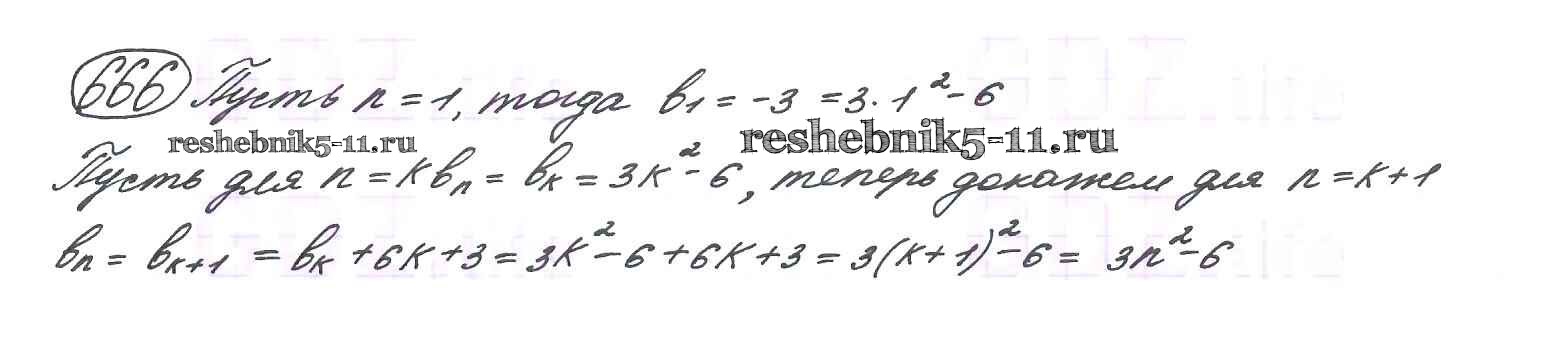 666 Пусть n = 1, тогда b₁ = -3 = 3·1² - 6
reshebnik5-11.ru reshebnik5-11.ru
Пусть для n = k bₙ = bₖ = 3k² - 6, теперь докажем для n = k+1
bₙ = bₖ₊₁ = bₖ + 6k + 3 = 3k² - 6 + 6k + 3 = 3(k+1)² - 6 = 3n² - 6